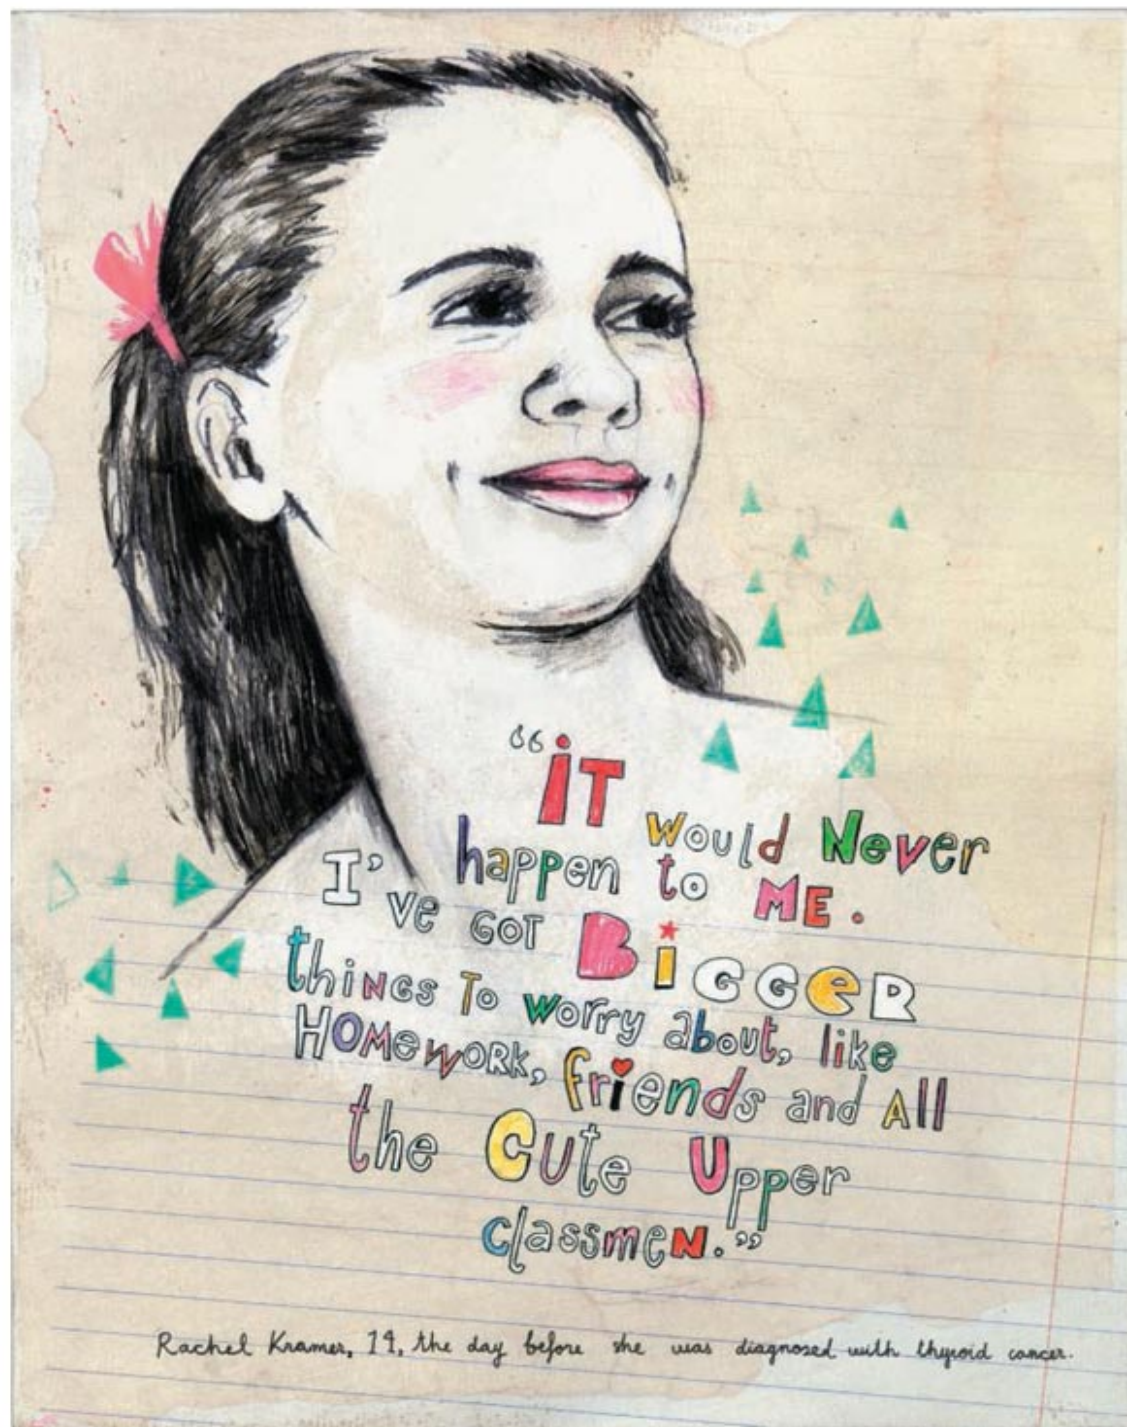 “iT
would Never
happen to ME.
I’ve GOT BiGGeR
thiNGs To worry about, like
HOMewORK, friends and All
the Cute Upper
classmeN.”
Rachel Kramer, 14, the day before she was diagnosed with thyroid cancer.